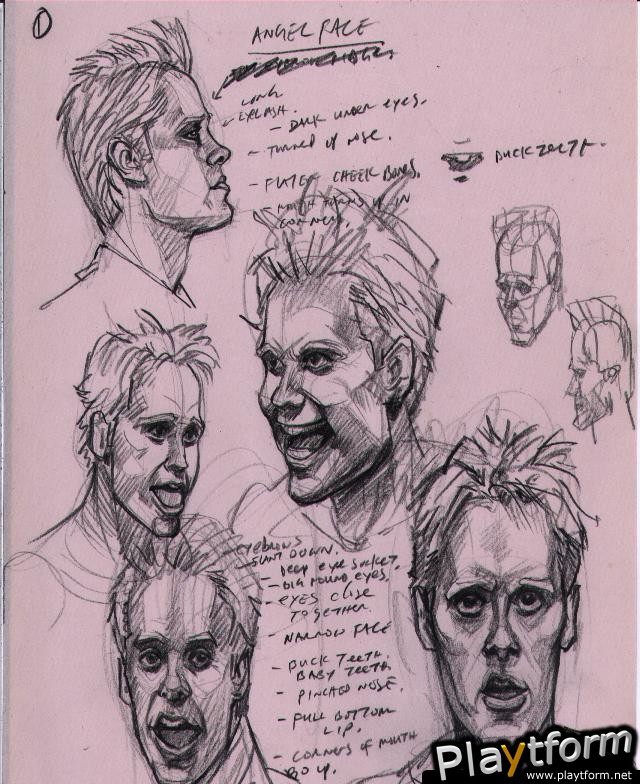 1
ANGEL FACE
LONG
EYELASH.
- DARK UNDER EYES.
- TURNED UP NOSE.
BUCK TEETH.
- FLATER CHEEK BONES.
- MOUTH TURNS UP IN
CORNERS.
EYEBROWS
SLANT DOWN.
- DEEP EYE SOCKET
- BIG ROUND EYES.
- EYES CLOSE
TOGETHER.
- NARROW FACE
- BUCK TEETH.
BABY TEETH
- PINCHED NOSE.
- FULL BOTTOM
LIP.
- CORNERS OF MOUTH
GO UP.
Playtform
www.playtform.net